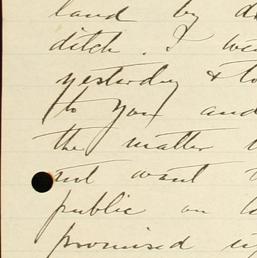 land by d
ditch. I we
yesterday & to
to you and
the matter
not want
public on
promised